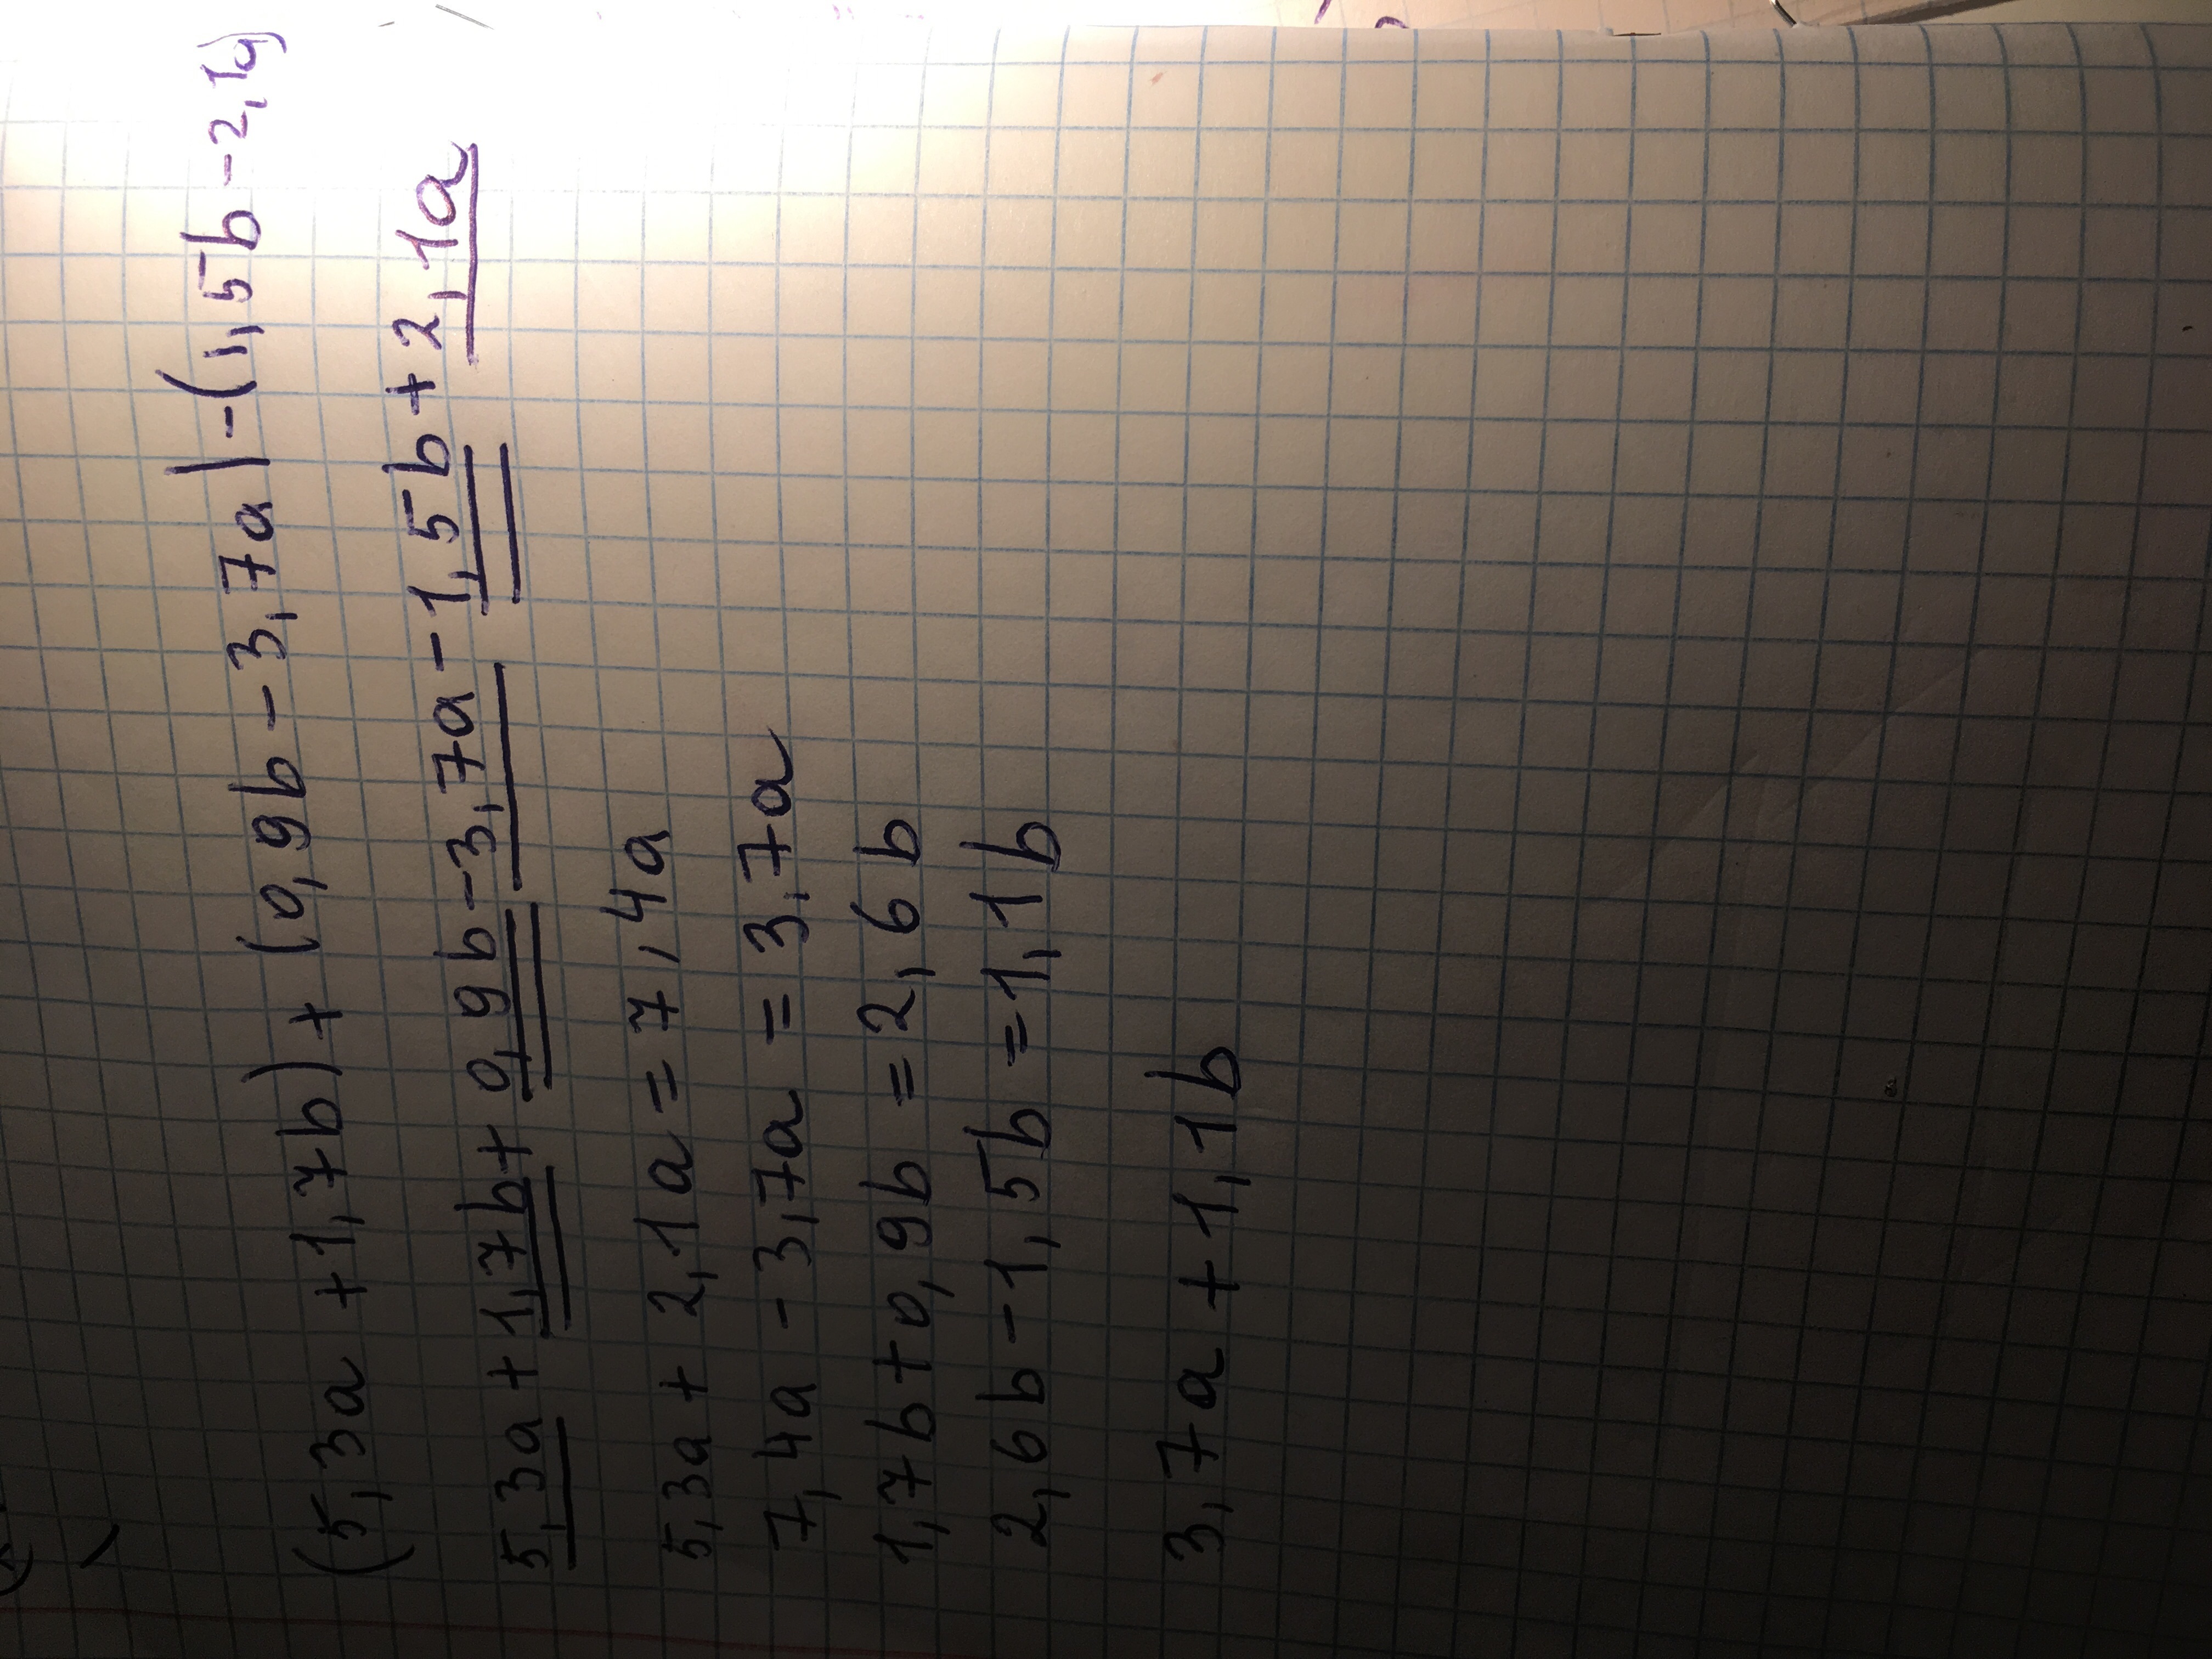 (5,3a + 1,7b) + (0,9b - 3,7a) - (1,5b - 2,1a)
5,3a + 1,7b + 0,9b - 3,7a - 1,5b + 2,1a
5,3a + 2,1a = 7,4a
7,4a - 3,7a = 3,7a
1,7b + 0,9b = 2,6b
2,6b - 1,5b = 1,1b
3,7a + 1,1b